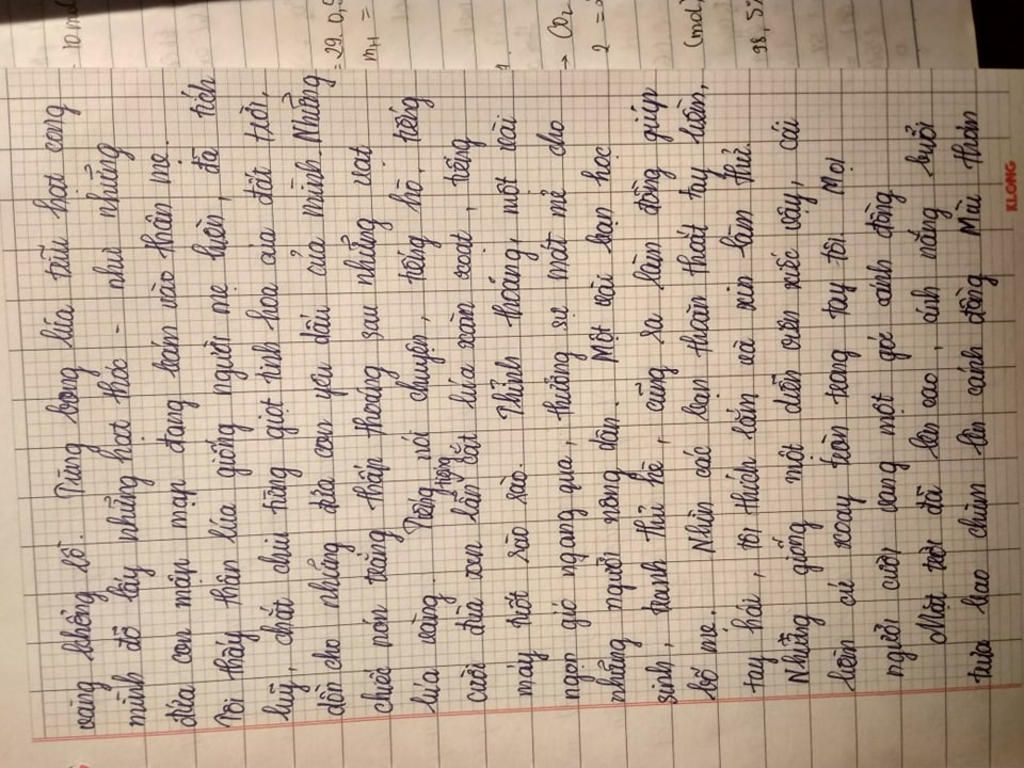 vàng khổng lồ. Từng bông lúa trĩu hạt căng
mình đỡ lấy những hạt thóc - như những
đứa con mập mạp đang bám vào thân mẹ.
Tôi thấy thân lúa giống người mẹ hiền, đã tích
luỹ, chắt chiu từng giọt tinh hoa của đất trời,
dồn cho những đứa con yêu dấu của mình. Những
chiếc nón trắng thấp thoáng sau những vạt
lúa vàng. Tiếng nói chuyện, tiếng hò, tiếng
cười đùa xen lẫn tiếng cắt lúa xoàn xoạt, tiếng
máy tuốt rào rào. Thỉnh thoảng, một vài
ngọn gió ngang qua, thưởng sự mát mẻ cho
những người nông dân. Một vài bạn học
sinh, tranh thủ hè, cũng ra làm đồng giúp
bố mẹ. Nhìn các bạn thoăn thoắt tay liềm,
tay hái, tôi thích lắm và xin làm thử.
Nhưng giống một diễn viên xiếc vậy, cái
liềm cứ xoay tròn trong tay tôi. Mọi
người cười vang một góc cánh đồng.
Mặt trời đã lên cao, ánh nắng buổi
trưa bao trùm lên cánh đồng. Mùi thơm
KLONG
10 mol
= 29.0,5
→ CO2
(mol)
98,5%